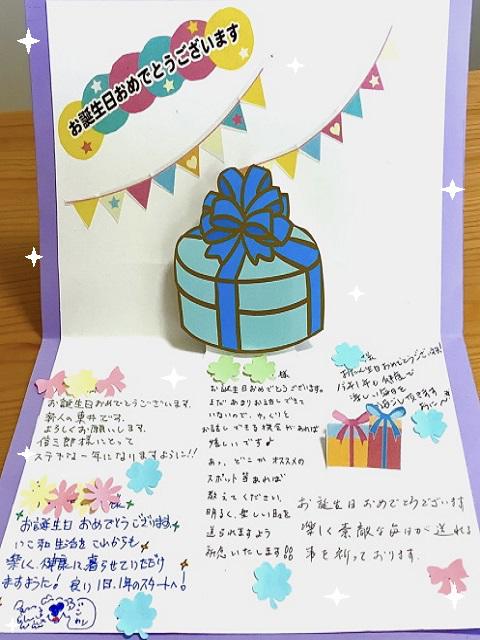 お誕生日おめでとうございます
お誕生日おめでとうございます。
新人の東井です。
よろしくお願いします。
信三郎様にとって
ステキな一年になりますように!!
様
お誕生日おめでとうございます。
まだあまりお話しできて
いないので、ゆっくり
お話しできる機会があれば
嬉しいです♪
あっ、どこかオススメの
スポット等あれば
教えてください。
明るく、楽しい毎日を
送られますよう
お祈りいたします!!
様
お誕生日おめでとうございます
楽しい毎日を
お誕生日おめでとうございます
楽しく素敵な毎日が送れる
事を祈っております。
様
お誕生日おめでとうございます。
生活をこれからも
楽しく、健康に暮らせていただけ
ますように! 良い1日、1年のスタートへ!